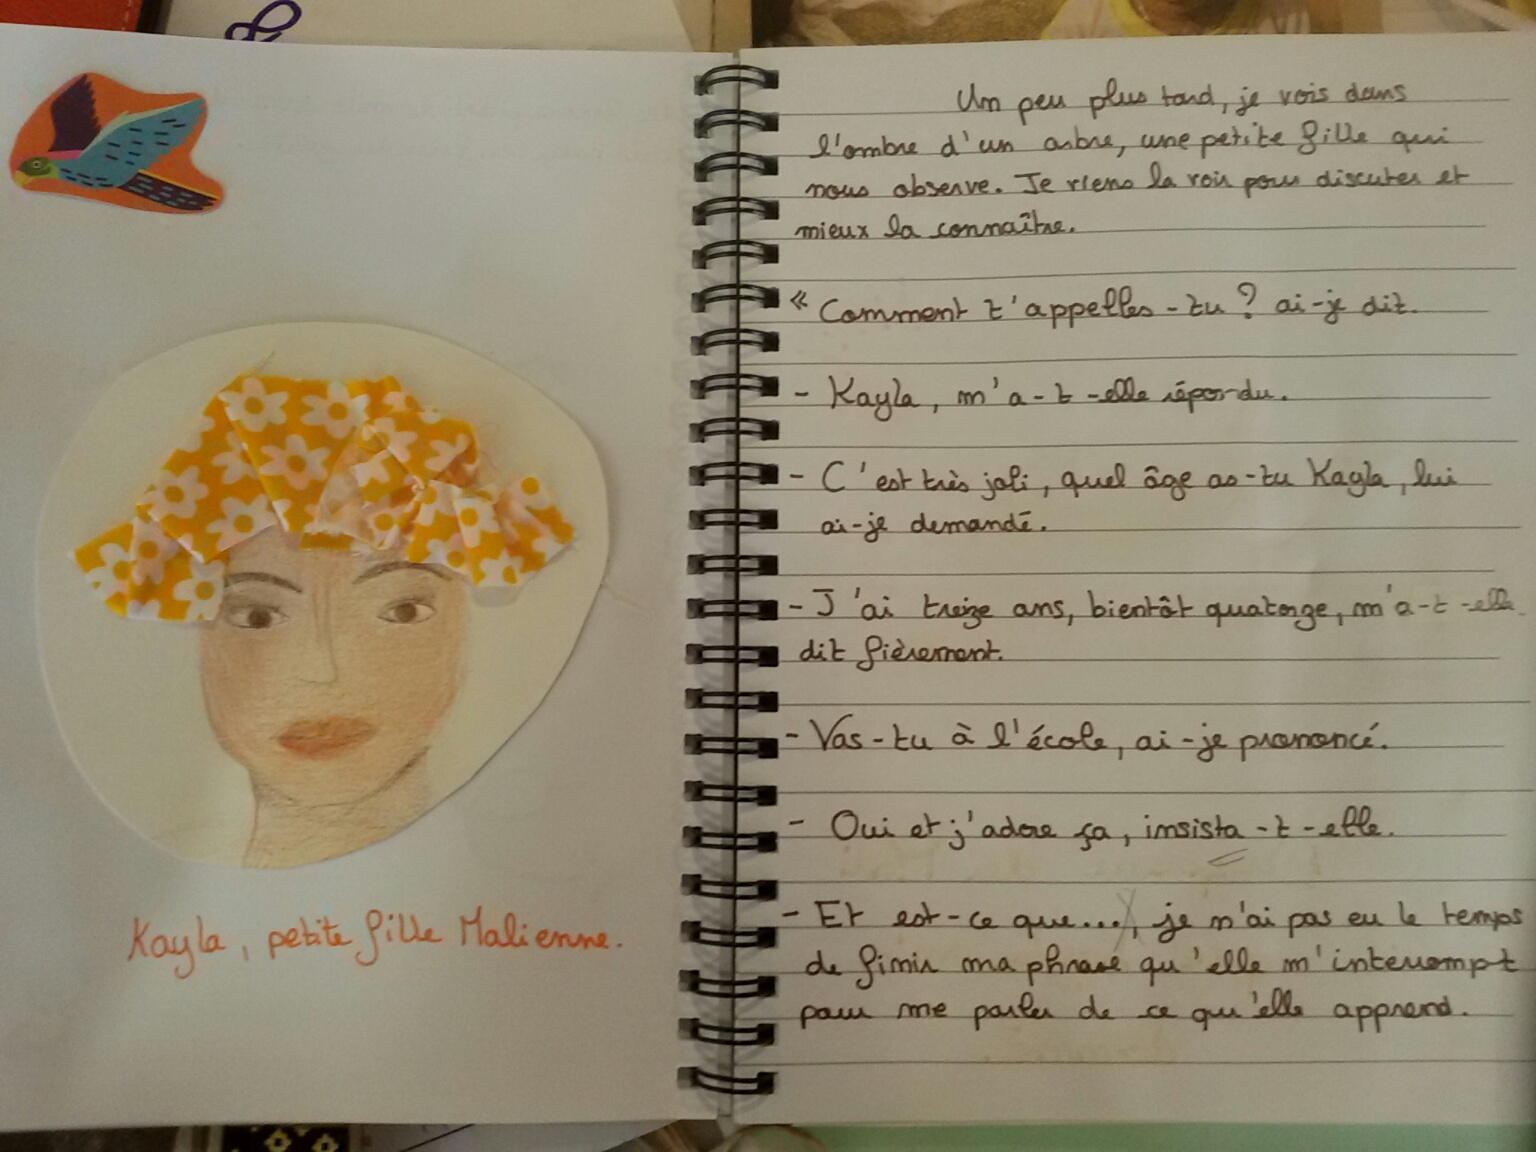 Kayla, petite fille Malienne.
Un peu plus tard, je vois dans
l'ombre d'un arbre, une petite fille qui
nous observe. Je viens la voir pour discuter et
mieux la connaître.
« Comment t'appelles-tu ? ai-je dit.
- Kayla, m'a-t-elle répondu.
- C'est très joli, quel âge as-tu Kayla, lui
ai-je demandé.
- J'ai treize ans, bientôt quatorze, m'a-t-elle
dit fièrement.
- Vas-tu à l'école, ai-je prononcé.
- Oui et j'adore ça, insista-t-elle.
- Et est-ce que..., je n'ai pas eu le temps
de finir ma phrase qu'elle m'interrompt
pour me parler de ce qu'elle apprend.